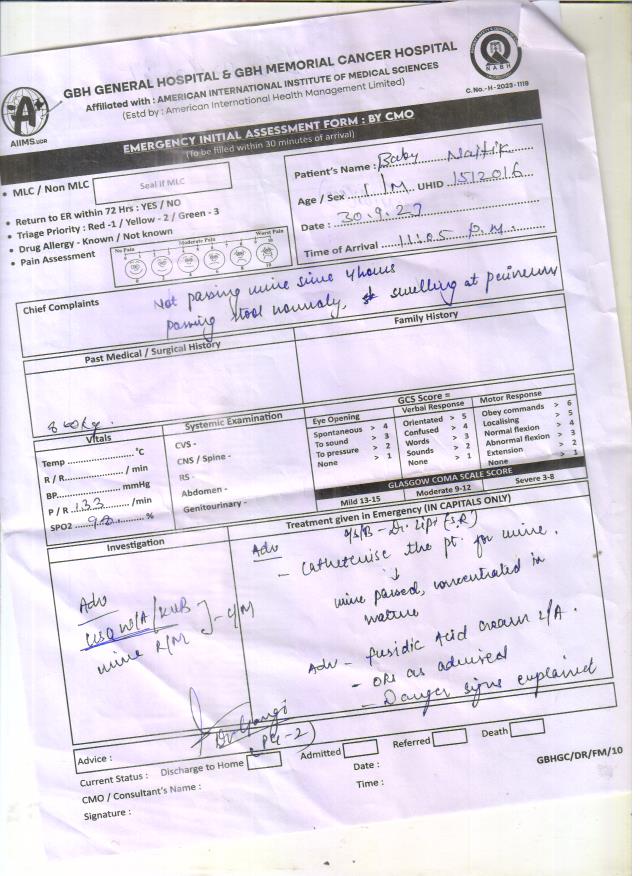 GBH GENERAL HOSPITAL & GBH MEMORIAL CANCER HOSPITAL
Affiliated with : AMERICAN INTERNATIONAL INSTITUTE OF MEDICAL SCIENCES
(Estd by : American International Health Management Limited)
AIIMS.UDR
NABH
C.No.-H-2023-1119
EMERGENCY INITIAL ASSESSMENT FORM : BY CMO
(To be filled within 30 minutes of arrival)
• MLC / Non MLC
Seal if MLC
• Return to ER within 72 Hrs : YES / NO
• Triage Priority : Red -1 / Yellow - 2 / Green - 3
• Drug Allergy - Known / Not known
• Pain Assessment
No Pain Moderate Pain Worst Pain
0 1 2 3 4 5 6 7 8 9 10
0 2 4 6 8 10
Patient's Name : Baby
Age / Sex / M UHID 1512016
Date : 30.9.
Time of Arrival 11:05 P.M.
Chief Complaints
Not passing urine since 4 hours
passing stool normaly, swelling at perineum
Past Medical / Surgical History
Family History
Vitals
Temp °C
R / R /min
BP mmHg
P / R 133 /min
SPO2 98 %
Systemic Examination
CVS -
CNS / Spine -
RS -
Abdomen -
Genitourinary -
GCS Score =
Eye Opening
Spontaneous > 4
To sound > 3
To pressure > 2
None > 1
Verbal Response
Orientated > 5
Confused > 4
Words > 3
Sounds > 2
None > 1
Motor Response
Obey commands > 6
Localising > 5
Normal flexion > 4
Abnormal flexion > 3
Extension > 2
None > 1
GLASGOW COMA SCALE SCORE
Mild 13-15 Moderate 9-12 Severe 3-8
Investigation
Adv
USG W/A / KUB
urine R/M
Treatment given in Emergency (IN CAPITALS ONLY)
Adv
- Catheterise the pt. for urine.
↓
urine passed, concentrated in
nature
Adv - fusidic Acid cream L/A.
- ORS as advised
- Danger signs explained
(PG-2)
Advice :
Current Status : Discharge to Home Admitted Referred Death
CMO / Consultant's Name : Date :
Signature : Time :
GBHGC/DR/FM/10